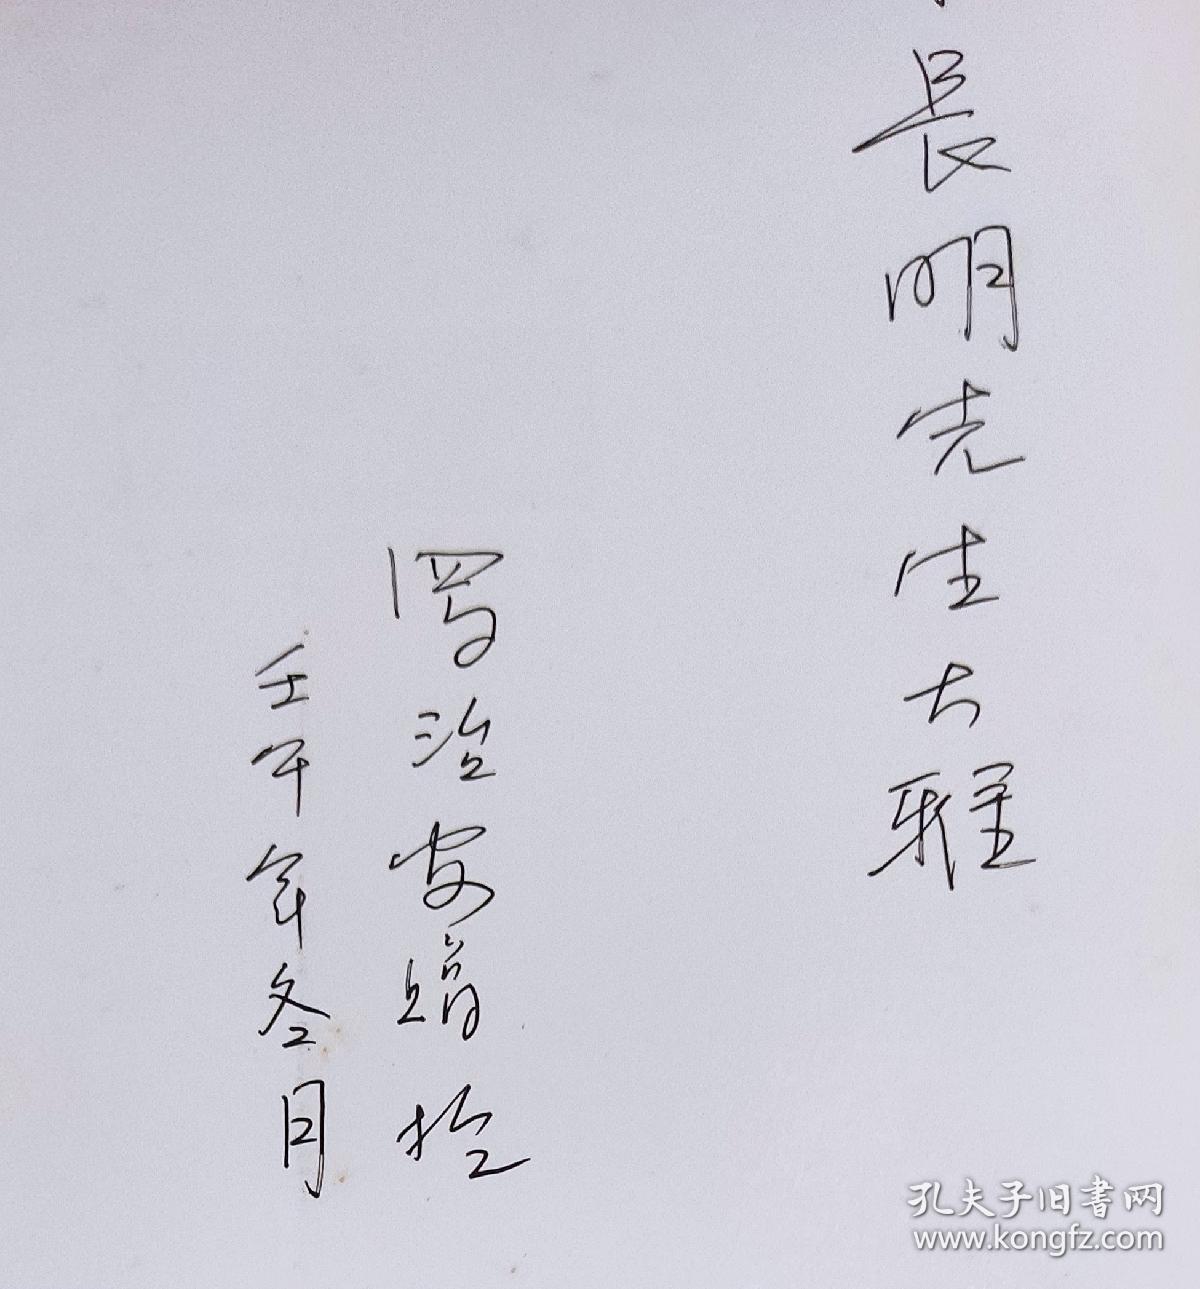 長明先生大雅
罗治安
壬午年冬月
孔夫子旧書网
www.kongfz.com